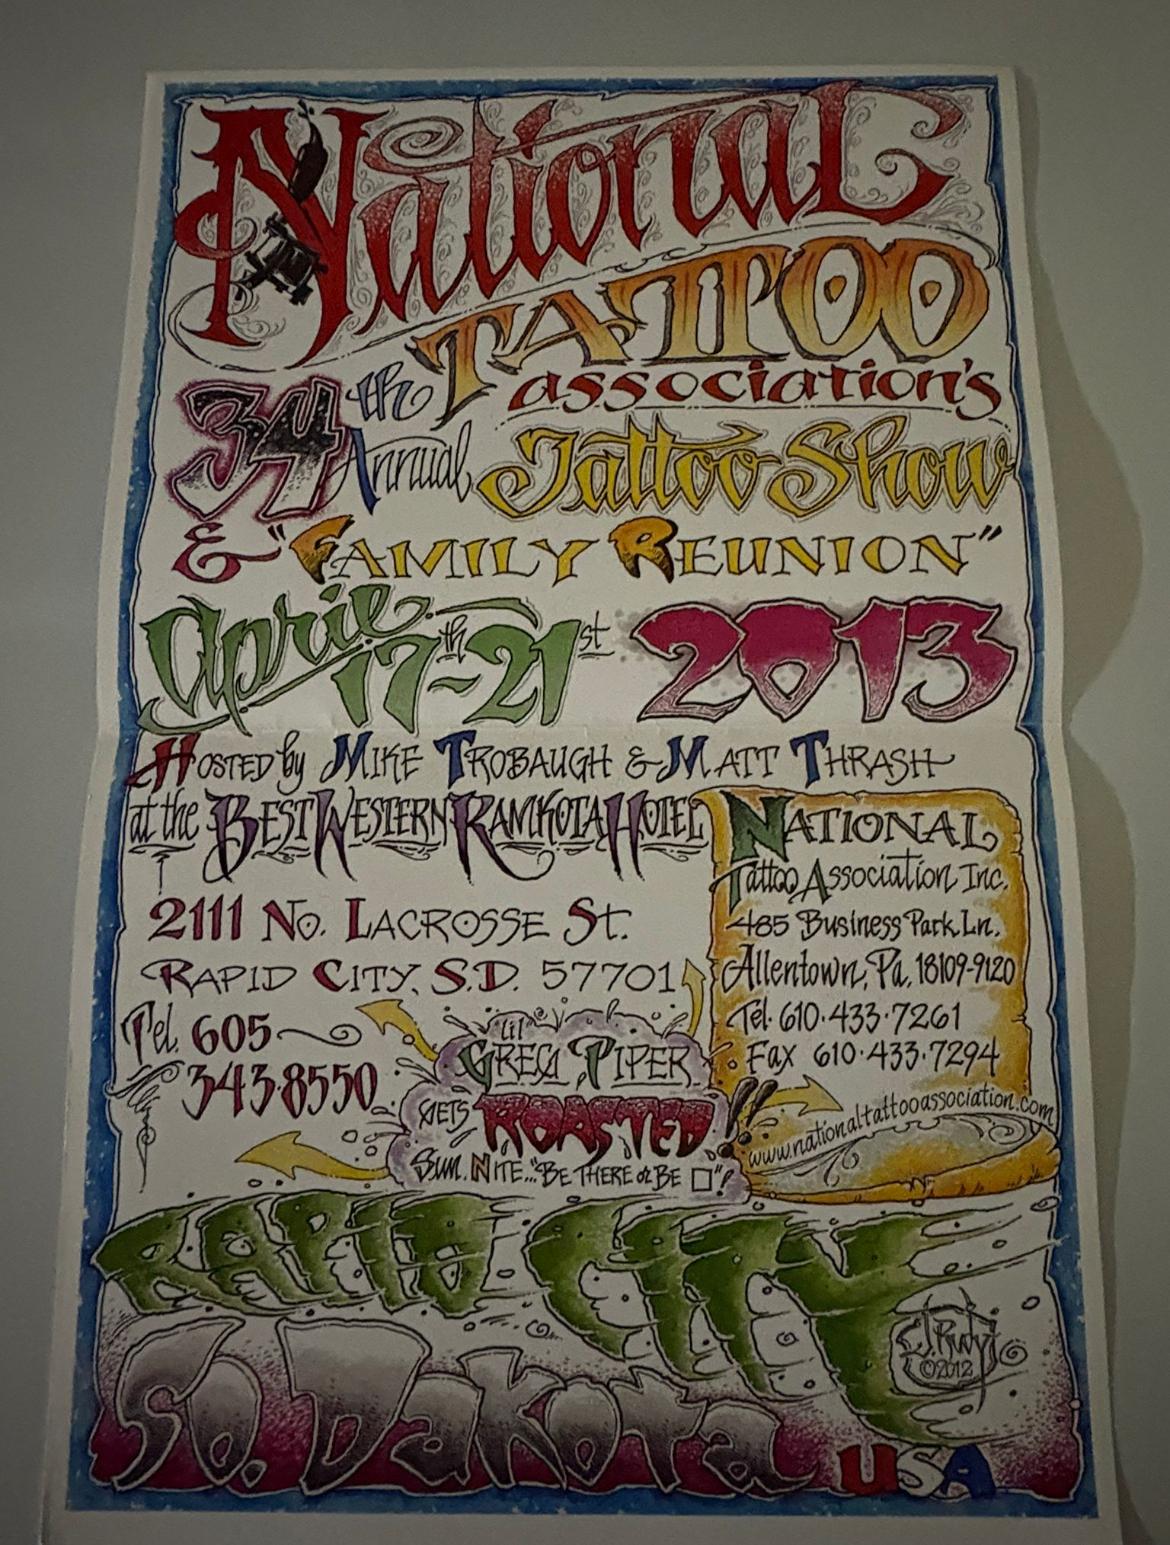 National
Tattoo
association's
34th Annual Tattoo Show
& "Family Reunion"
April 17th-21st 2013
Hosted by Mike Trobaugh & Matt Thrash
at the Best Western Ramkota Hotel
2111 No. Lacrosse St.
Rapid City, S.D. 57701
Tel. 605~
343·8550
National
Tattoo Association Inc.
485 Business Park Ln.
Allentown, Pa. 18109-9120
Tel. 610·433·7261
Fax 610·433·7294
www.nationaltattooassociation.com
Lil'
Greg Piper
gets Roasted!!
Sun. Nite..."Be there or be □"!
Rapid City
So. Dakota
USA
©2012